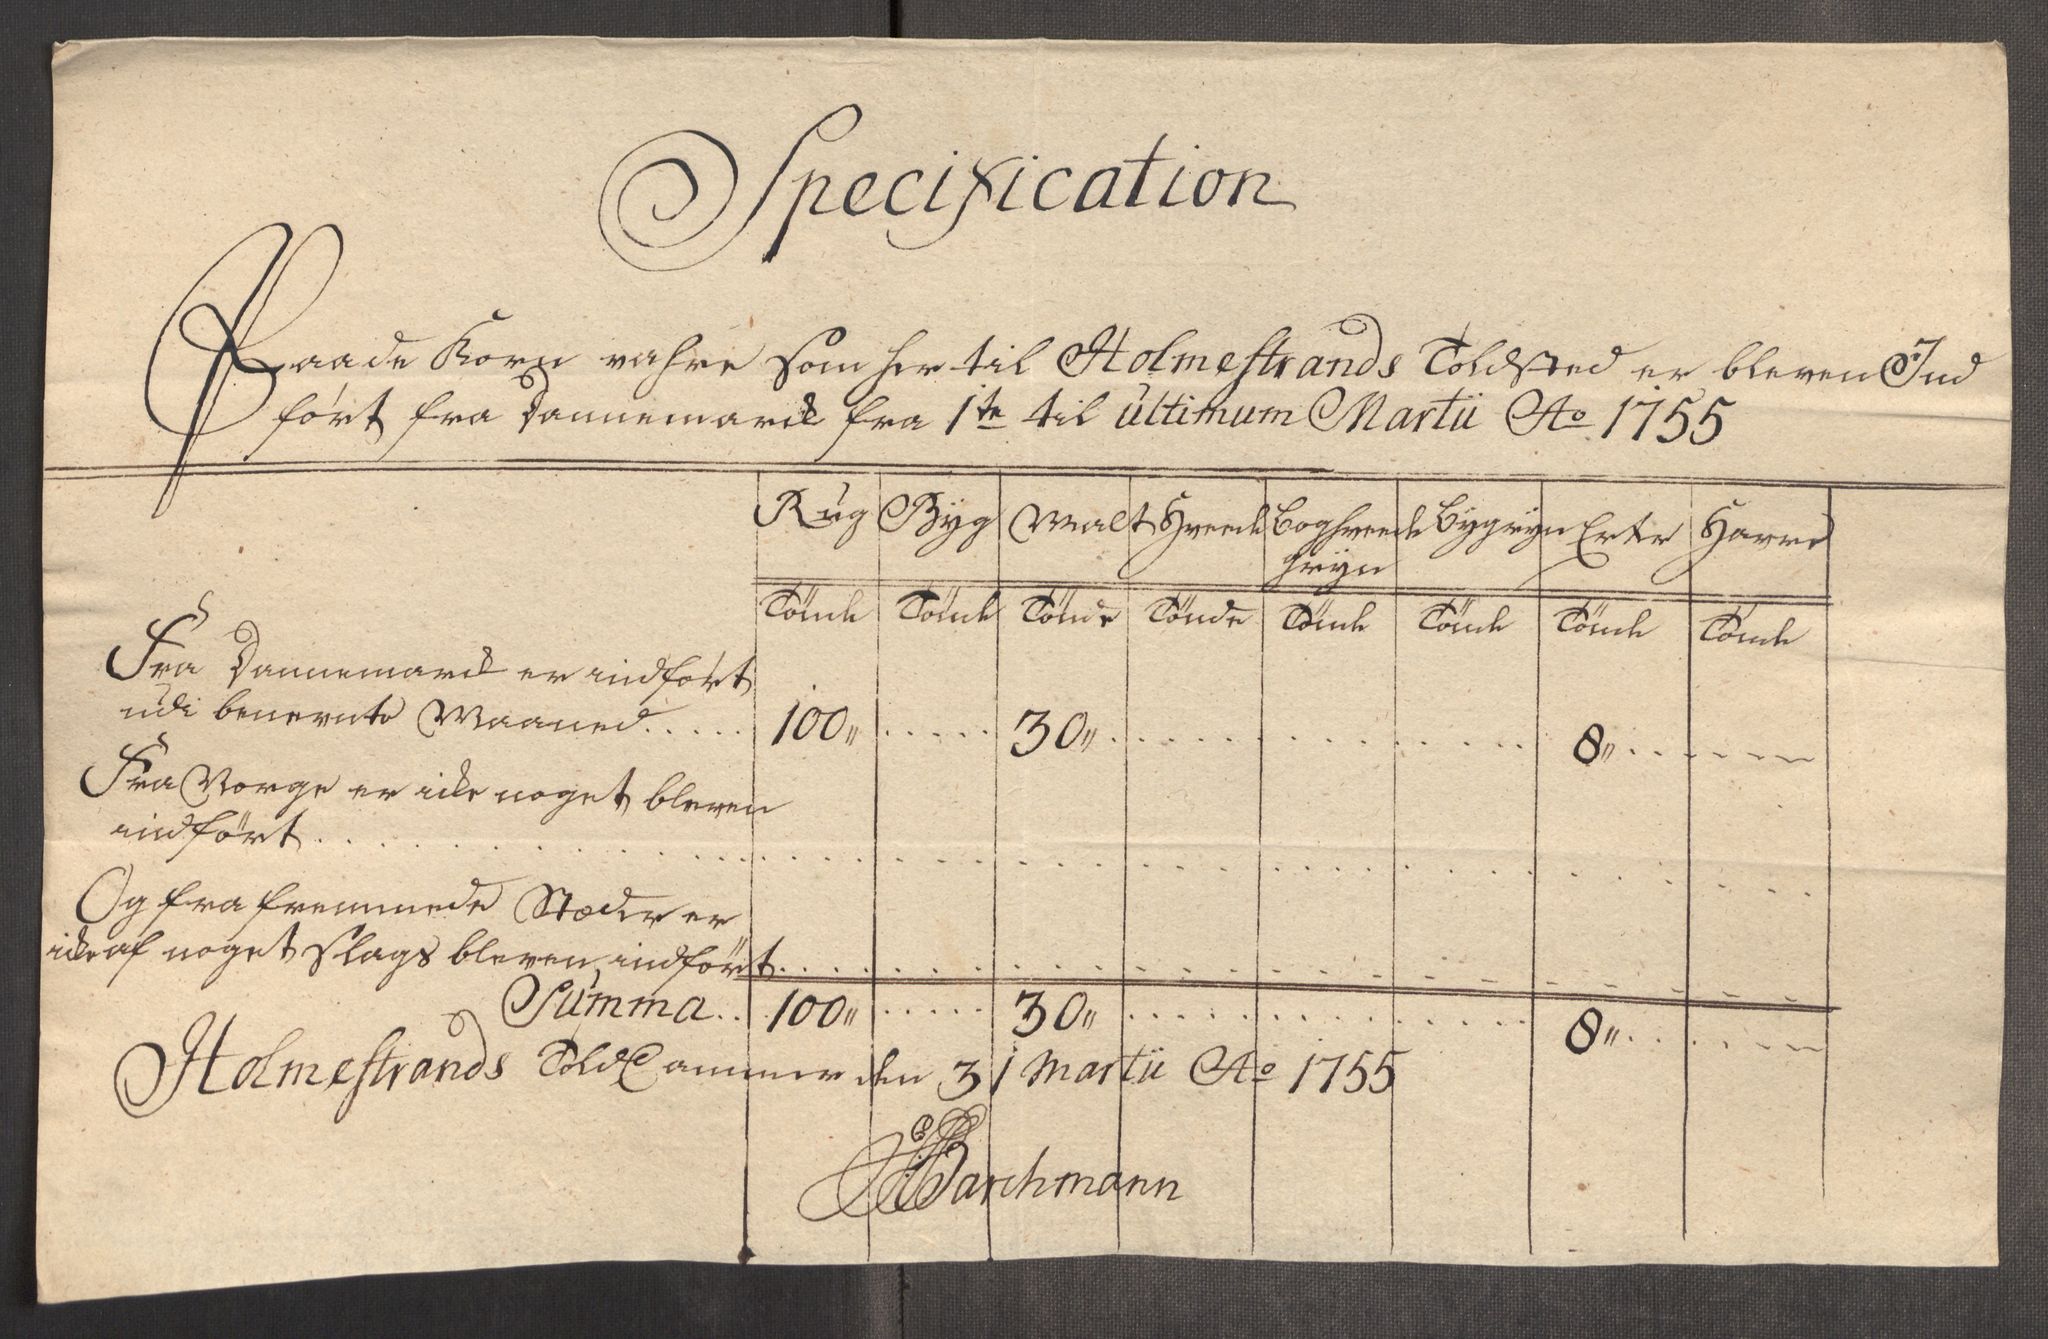 Specification
Paa de Korn vahre som her til Holmestrands Toldsted er bleven Ind
fört fra Dannemarck fra 1te til ultimum Martii Ao 1755
Rug Byg Malt Hvede Boghvede Bygryn Erter Havre
gryn
Tönde Tönde Tönde Tönde Tönde Tönde Tönde Tönde
Fra Dannemarck er indfört
udi benevnte Maaned..... 100„ ..... 30„ ..... 8„ .....
Fra Norge er icke noget bleven
indfört.....
Og fra fremmede Stæder er
icke af noget Slags bleven indfört.....
Summa.. 100„ ..... 30„ ..... 8„ .....
Holmestrands Told Cammer den 31 Martii Ao 1755
Barchmann